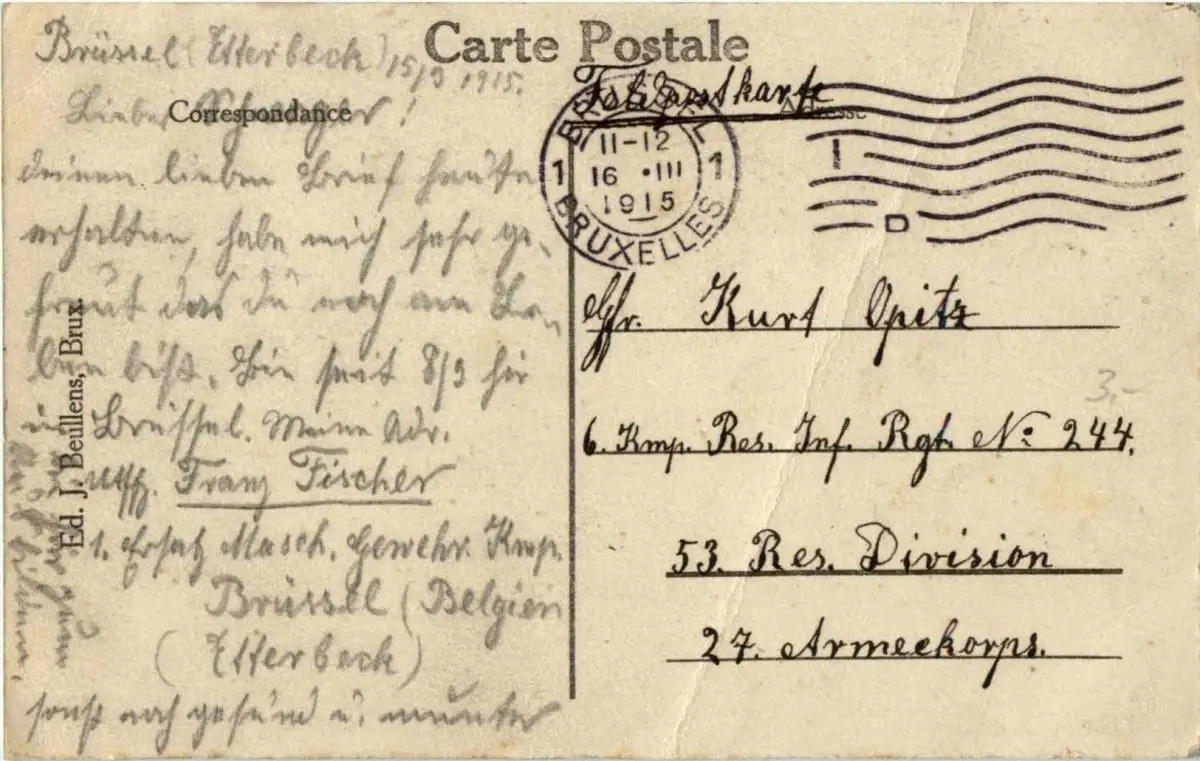 Carte Postale
Correspondance
Adresse
Ed. J. Beullens, Brux.
Brüssel (Etterbeck) 15/3 1915.
Lieber Schwager!
deinen lieben Brief heute
erhalten, habe mich sehr ge-
freut das du noch am Le-
ben bist. Bin seit 8/3 hier
in Brüssel. Meine Adr.
Uffz. Franz Fischer
1. Ersatz Masch. Gewehr. Kmp.
Brüssel (Belgien
(Etterbeck)
sonst noch gesund u. munter
zum
Ausbilden,
Feldpostkarte
BRÜSSEL
11-12
1 16 •III 1
1915
BRUXELLES
1
D
Gfr. Kurt Opitz
3.-
6. Kmp. Res. Inf. Rgt. No. 244.
53. Res. Division
27. Armeekorps.